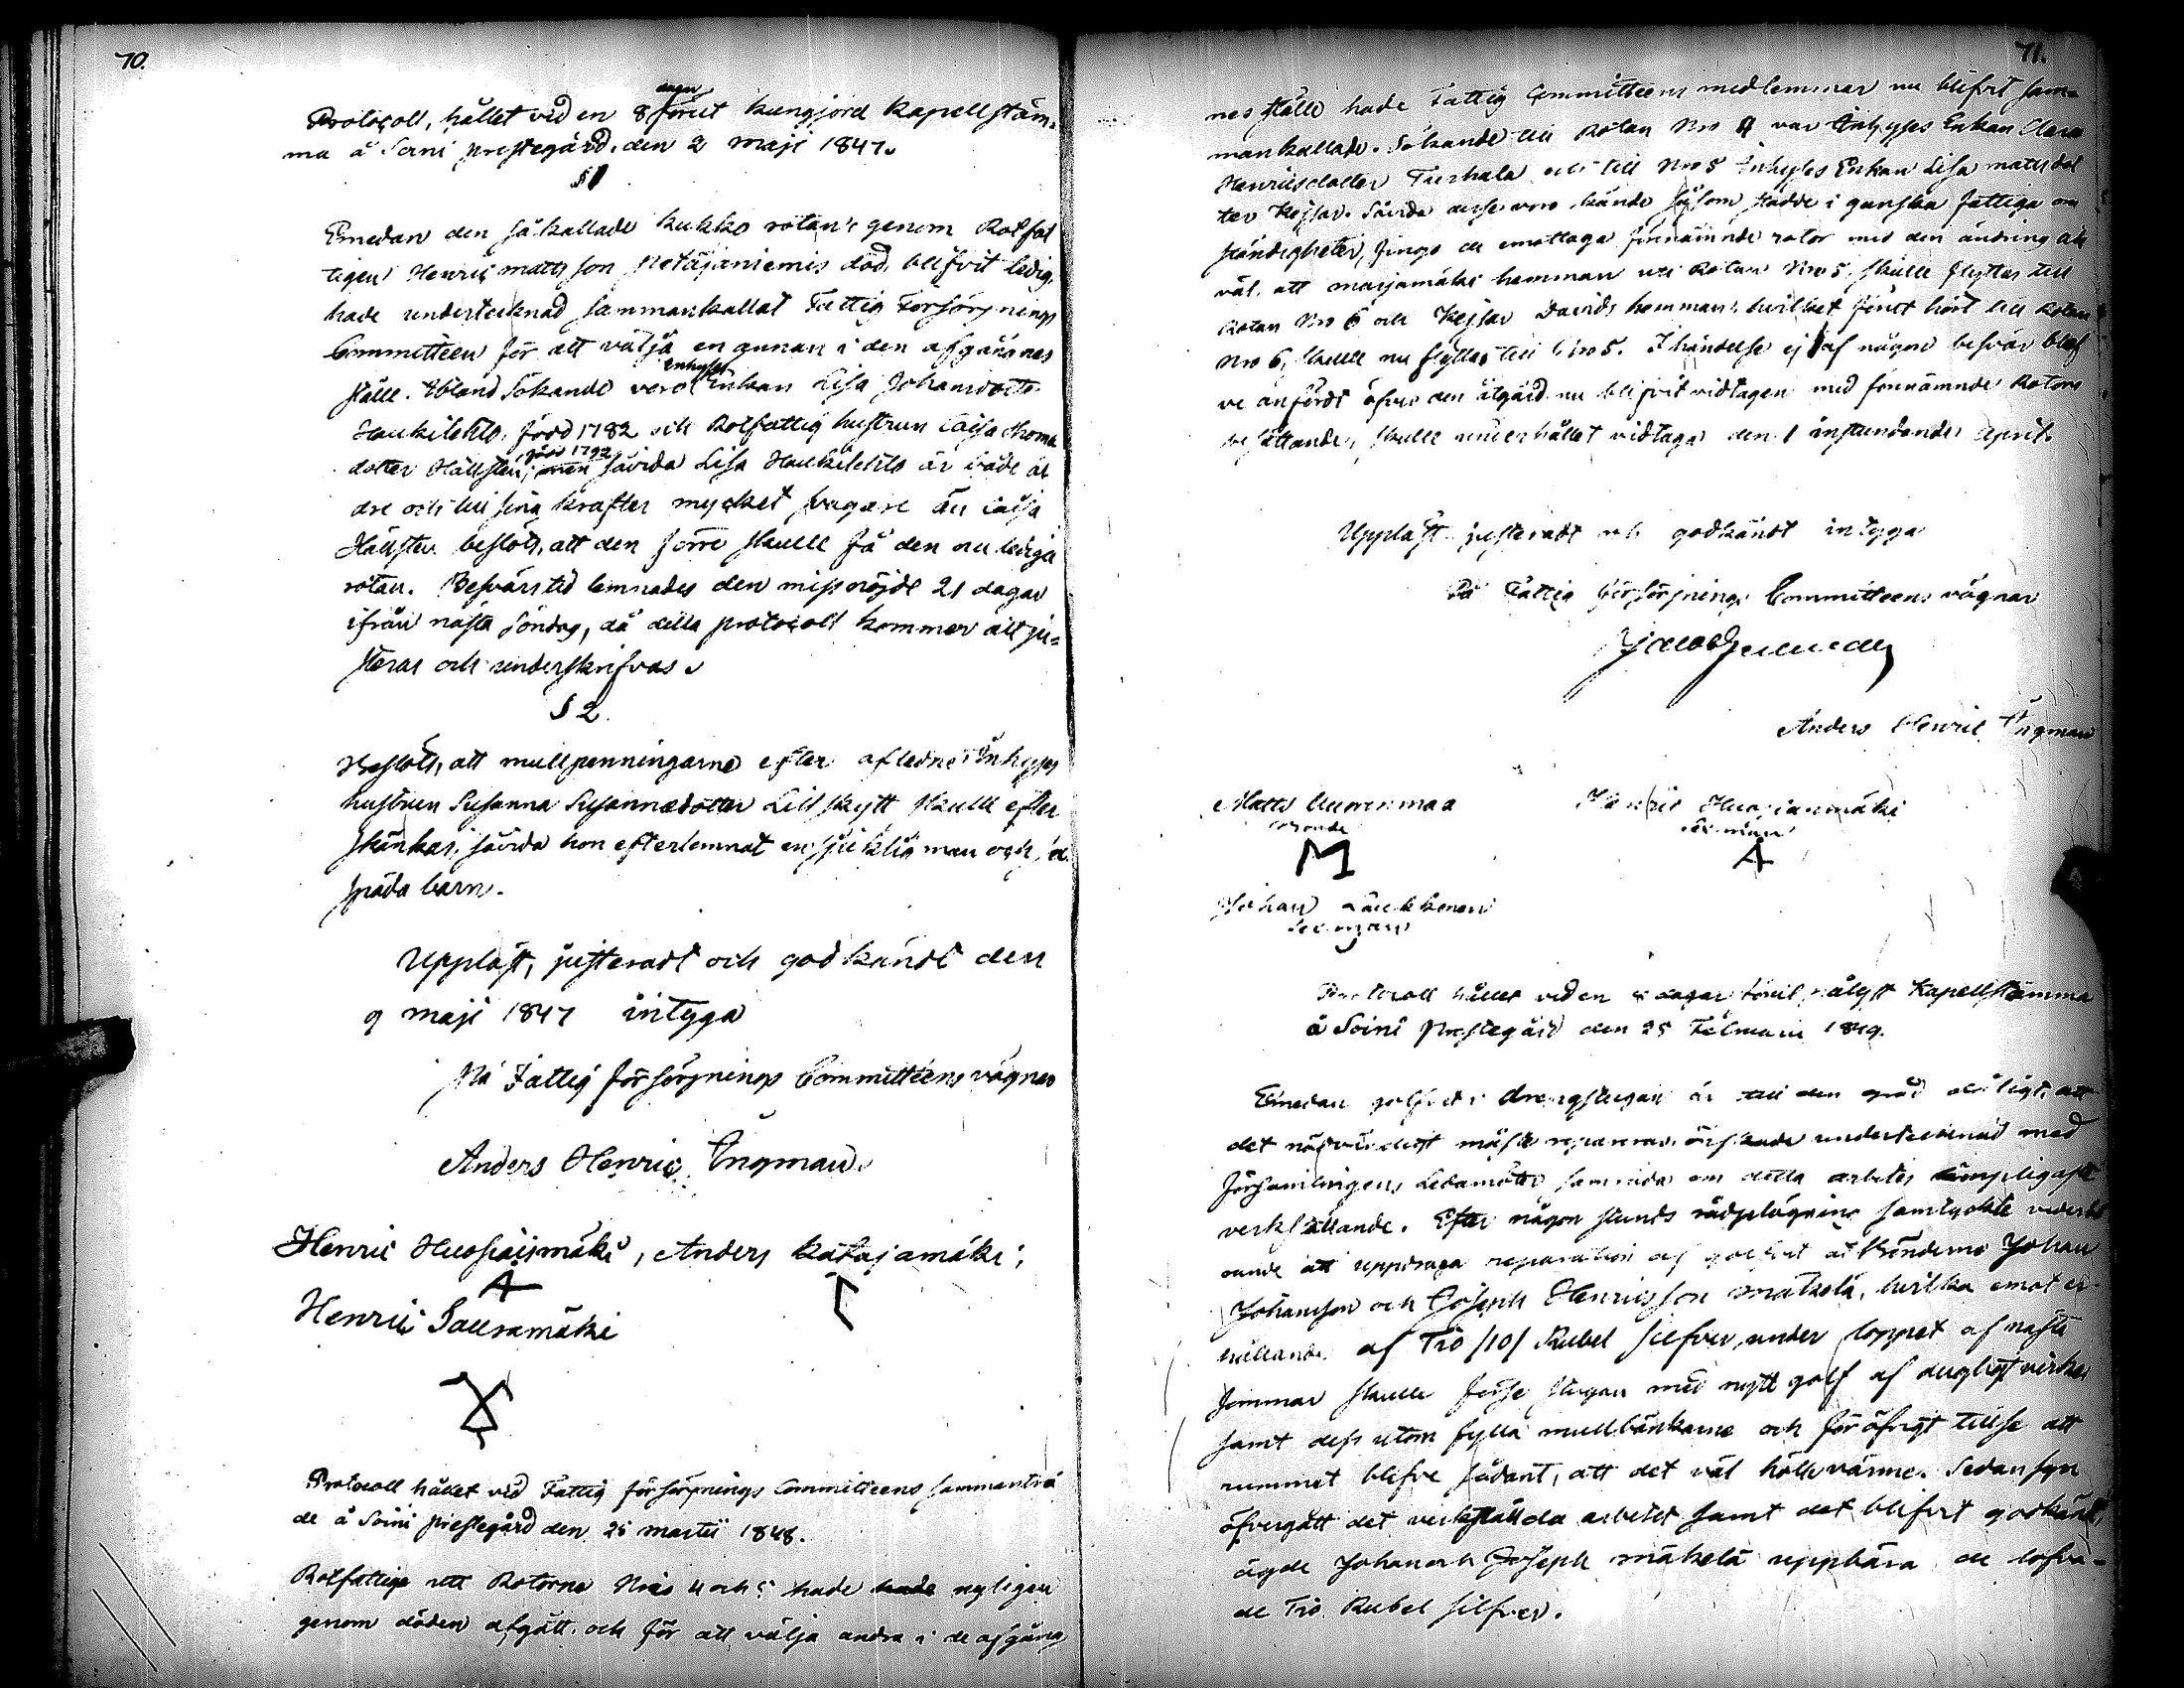 70.
Protocoll, hållet vid en 8 dagar förut kungjord Kapellstäm-
ma å Soini prestegård, den 2 maji 1847.
§ 1
Emedan den så kallade Kukko rotan's genom Rotfat
tigen Henric Mattsson Petäjäniemis död, blifvit ledig,
hade undertecknad sammankallat Fattig Försörjnings
Committeen för att välja en annan i den afgångnes
ställe. Ibland Sökande voro Inhyses Enkan Lisa Johansdotter
Haukilehto, född 1782 och Rotfattig hustrun Caisa Thoma
dotter Hällsten, född 1792, men såvida Lisa Haukilehto är både äl
dre och till sina krafter mycket svagare än Caisa
Hällsten beslöts, att den förre skulle få den nu lediga
rotan. Besvärstid lemnades den missnöjde 21 dagar
ifrån nästa Söndag, då detta protocoll kommer att ju-
steras och underskrifvas.
§ 2.
Beslöts, att mullpenningarne efter aflidne Inhyses
hustrun Susanna Susannædotter Lillskytt skulle efter
skänkas, såvida hon efterlemnat en sjuklig man och
späda barn.
Uppläst, justeradt och godkändt den
9 maji 1847 intyga
På Fattig försörjnings Committéens vägnar
Anders Henric Ingman.
Henric Huosiaismäki, Anders Katajamäki,
Henric Sauramäki
Protocoll hållet vid Fattig försörjnings Committeens sammanträ
de å Soini prestegård den 25 martii 1848.
Rotfattige uti Rotorne Nris 4 och 5 hade hade nyligen
genom döden afgått, och för att välja andra i de afgång
71.
nes ställe hade Fattig Committéens medlemmar nu blifvit sam-
mankallade. Sökande till Rotan Nro 4 var Inhyses Enkan Clara
Henricsdotter Turhala och till Nro 5 Inhyses Enkan Lisa Mattsdot
ter Kejsar. Såvida desse voro kände såsom stadde i ganska fattiga om
ständigheter, fingo de emottaga förenämnde rotor med den ändring
väl, att Marjamäki hemman uti Rotan Nro 5, skulle flyttas till
Rotan Nro 6 och Kejsar Davids hemman, hvilket förut hört till Rotan
Nro 6, skulle nu flyttas till Nro 5. I händelse ej af någon besvär blef
ve anfördt öfver den åtgärd nu blifvit vidtagen med förenämnde Rotors
besättande, skulle underhållet vidtaga den 1 instundande April.
Uppläst justeradt och godkändt intyga
På Fattig försörjnings Committeens vägnar
Anders Henric Ingman
Matts
Henric Huosianmäki
sexman
Johan
Sexman
Protocoll hållet vid en 8 dagar förut pålyst Kapellstämma
å Soini Prestegård den 25 Februarii 1849.
Emedan golfvet i drengstugan är till den grad dåligt, att
det nödvändigt måste repareras, önskade undertecknad med
Församlingens Ledamöter samråda om detta arbetes lämpligaste
verkställande. Efter någon stunds rådplägning samtyckte vederbö
rande att uppdraga reparation af golfvet åt Bönderne Johan
Johansson och Joseph Henricsson Mäkelä, hvilka emot er-
hållande af Tio /10/ Rubel silfver, under loppet af nästa
sommar skulle förse stugan med nytt golf af dugligt virke,
samt dess utom fylla mullbänkarne och för öfrigt tillse att
rummet blefve sådant, att det väl hölle värme. Sedan syn
öfvergått det verkställda arbetet samt det blifvit godkändt,
ägde Johan och Joseph Mäkelä uppbära de lofva-
de Tio Rubel silfver.